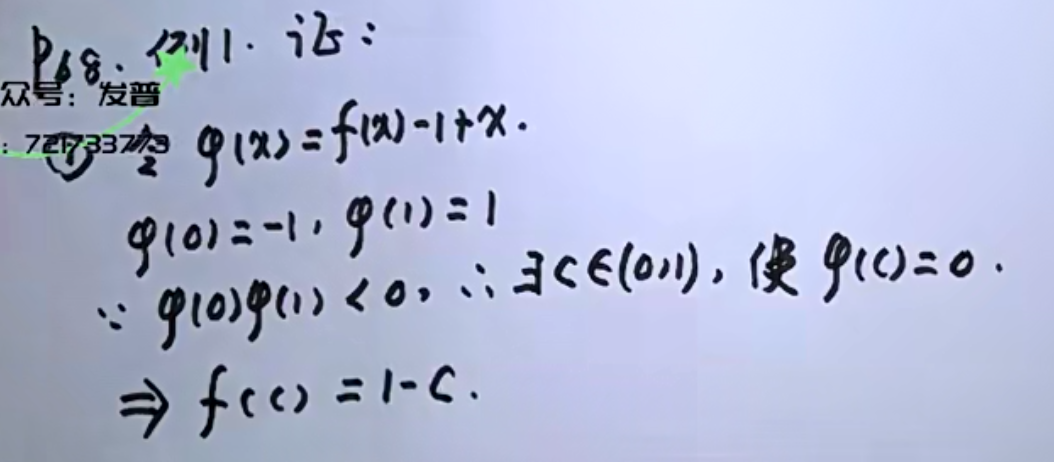 P68. 例1. 证:
众号: 发普
: 721733773
① 令 φ(x)=f(x)-1+x.
φ(0)=-1, φ(1)=1
∵ φ(0)φ(1)<0, ∴ ∃c∈(0,1), 使 φ(c)=0.
⇒ f(c)=1-c.